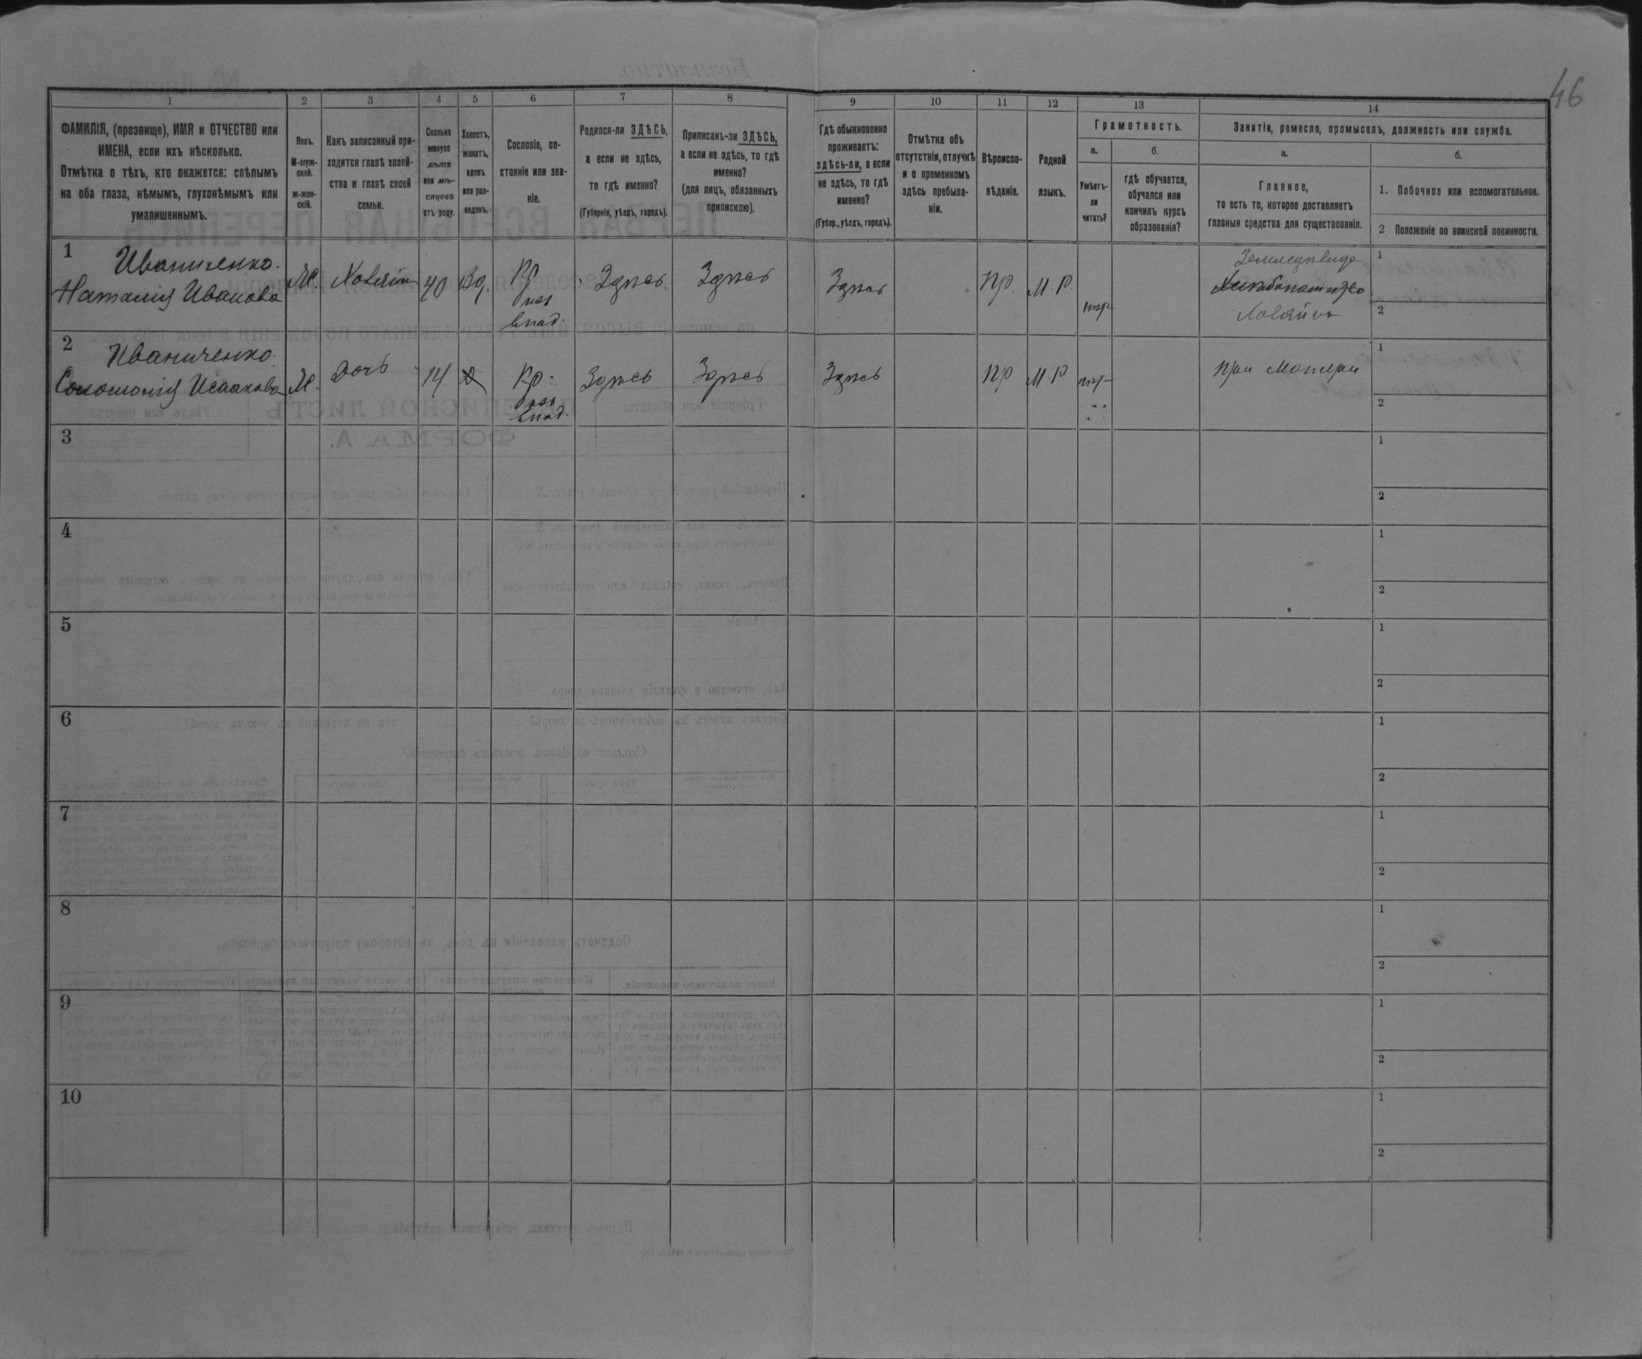 46
1
2
3
4
5
6
7
8
9
10
11
12
13
14
ФАМИЛІЯ, (прозвище), ИМЯ и ОТЧЕСТВО или
ИМЕНА, если ихъ нѣсколько.
Отмѣтка о тѣхъ, кто окажется: слѣпымъ
на оба глаза, нѣмымъ, глухонѣмымъ или
умалишеннымъ.
Полъ.
М-муж-
ской.
ж-жен-
скій.
Какъ записанный при-
ходится главѣ хозяй-
ства и главѣ своей
семьи.
Сколько
минуло
лѣтъ
или мѣ-
сяцевъ
отъ роду.
Холостъ,
женатъ,
вдовъ
или раз-
веденъ.
Сословіе, со-
стояніе или зва-
ніе.
Родился-ли ЗДѢСЬ,
а если не здѣсь,
то гдѣ именно?
(Губернія, уѣздъ, городъ).
Приписанъ-ли ЗДѢСЬ,
а если не здѣсь, то гдѣ
именно?
(для лицъ, обязанныхъ
припискою).
Гдѣ обыкновенно
проживаетъ:
здѣсь-ли, а если
не здѣсь, то гдѣ
именно?
(Губер., уѣздъ, городъ).
Отмѣтка объ
отсутствіи, отлучкѣ
и о временномъ
здѣсь пребыва-
ніи.
Вѣроиспо-
вѣданіе.
Родной
языкъ.
Грамотность.
а.
Умѣетъ-
ли
читать?
б.
гдѣ обучается,
обучался или
кончилъ курсъ
образованія?
Занятіе, ремесло, промыселъ, должность или служба.
а.
Главное,
то есть то, которое доставляетъ
главныя средства для существованія.
б.
1. Побочное или вспомогательное.
2 Положеніе по воинской повинности.
1
Иваниченко.
Наталія Иванова
Ж.
Хозяйка
40
Вд.
Кр
влад.
Здѣсь
Здѣсь
Здѣсь
Пр.
М Р.
нѣт
Хозяйка
1
2
2
Иваниченко
Соломонія Исаакова
Ж.
Дочь
14
Кр.
влад.
Здѣсь
Здѣсь
Здѣсь
Пр
М Р
нѣт
При матери
1
2
3
1
2
4
1
2
5
1
2
6
1
2
7
1
2
8
1
2
9
1
2
10
1
2